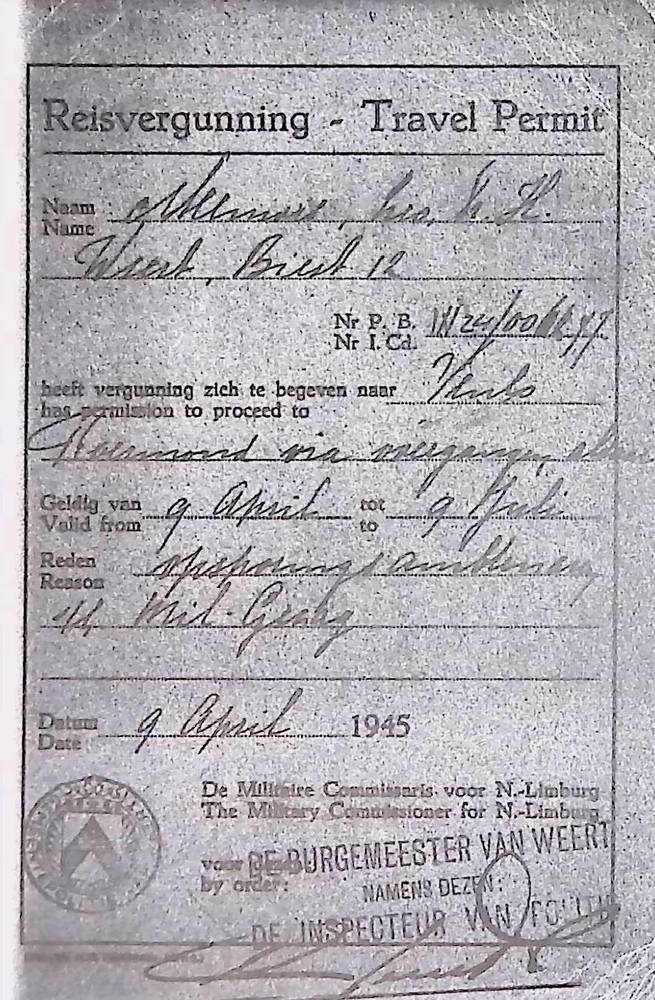 Reisvergunning - Travel Permit
Naam
Name
Weert, Biest 12
Nr P. B.
Nr I. Cd.
heeft vergunning zich te begeven naar Venlo
has permission to proceed to
Roermond via
Geldig van 9 April tot 9 Juli
Valid from to
Reden opsporingsambtenaar
Reason
Mil. Gezag
Datum 9 April 1945
Date
De Militaire Commissaris voor N.-Limburg
The Military Commissioner for N.-Limburg
voor
by order:
DE BURGEMEESTER VAN WEERT
NAMENS DEZEN:
DE INSPECTEUR VAN POLITIE